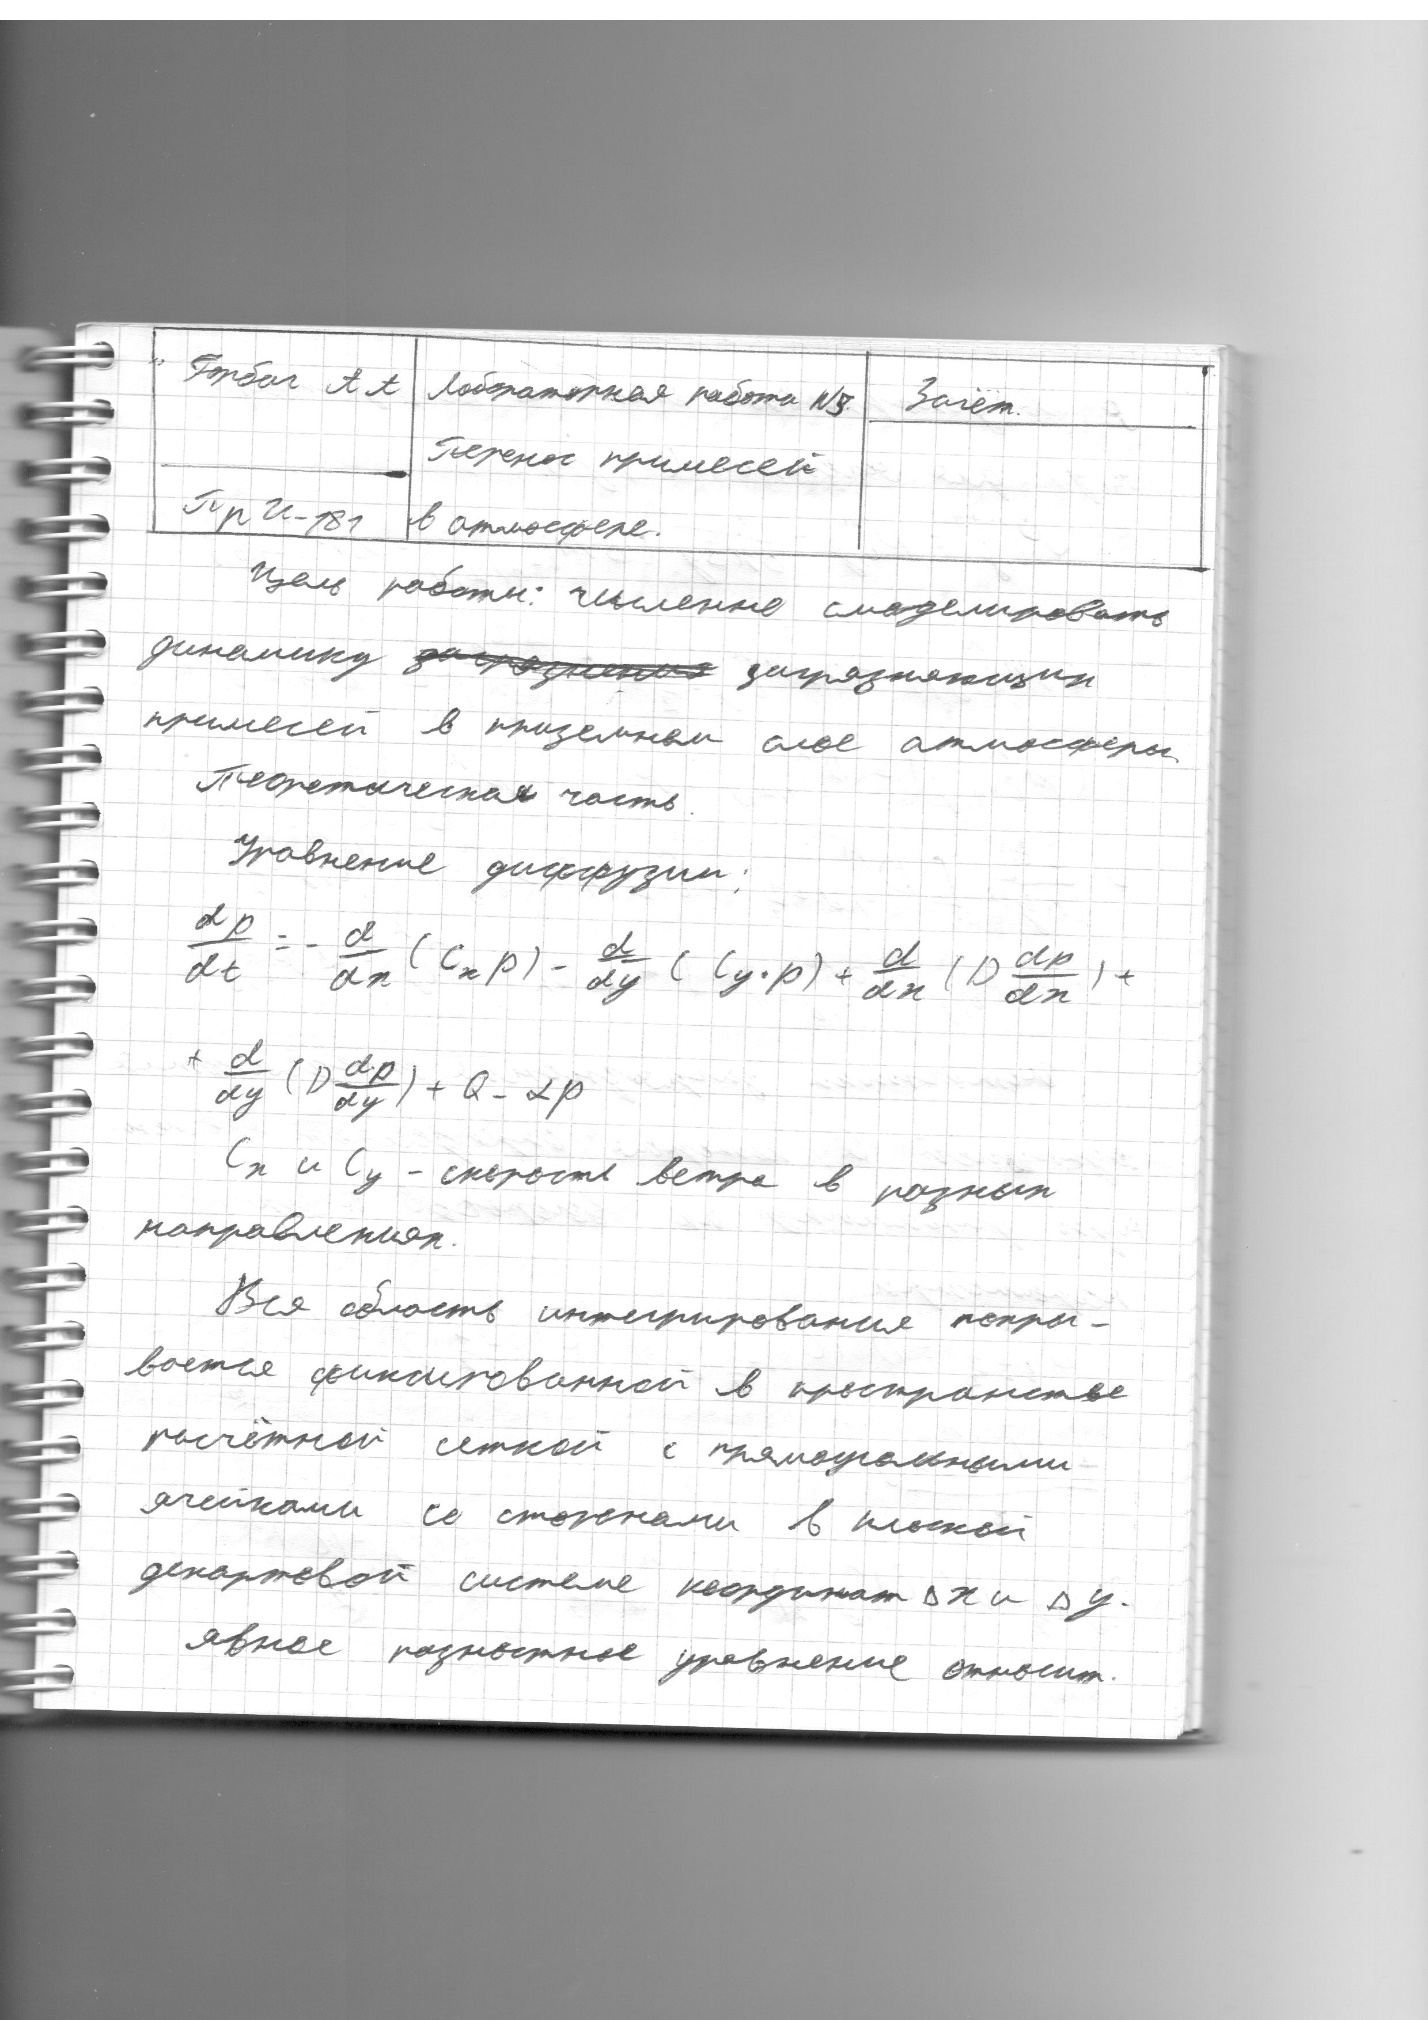 Горбач А А
Лабораторная работа №3.
Зачёт.
Перенос примесей
ПрИ-181
в атмосфере.
Цель работы: численно смоделировать
динамику загрязняющих
примесей в приземном слое атмосферы.
Теоретическая часть.
Уравнение диффузии:
dp/dt = - d/dx (Cx p) - d/dy (Cy·p) + d/dx (D dp/dx) +
+ d/dy (D dp/dy) + Q - αp
Cx и Cy - скорость ветра в разных
направлениях.
Вся область интегрирования покры-
вается фиксированной в пространстве
расчётной сеткой с прямоугольными
ячейками со сторонами в плоской
декартовой системе координат Δx и Δy.
явное разностное уравнение относит.